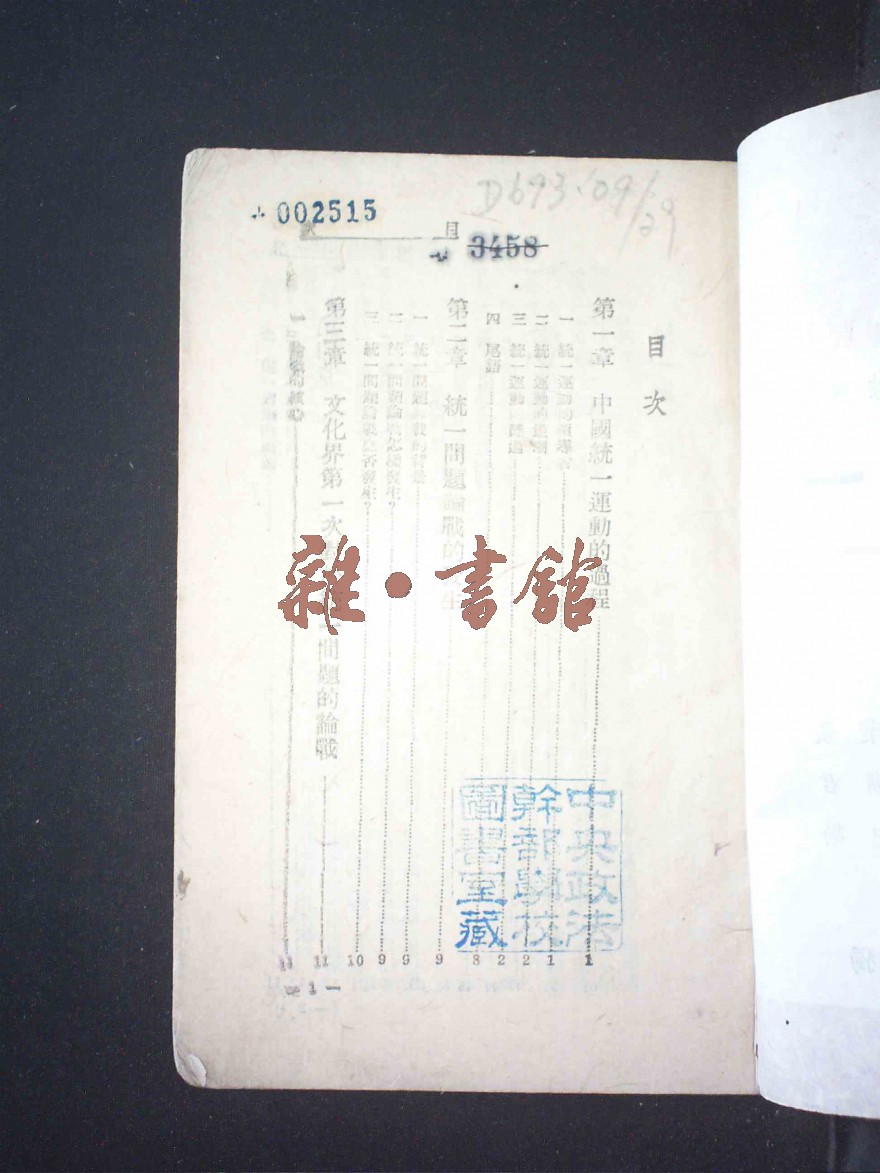 002515
D693.09/29
目
3458
目次
第一章 中國統一運動的過程 1
一 統一運動的領導者 1
二 統一運動的 2
三 統一運動 2
四 尾語 8
第二章 統一問題論戰的 生 9
一 統一問題論戰的背景 9
二 統一問題論戰怎樣發生? 9
三 統一問題論戰 否發生? 10
第三章 文化界第一次 問題的論戰 11
一 論戰的核心 11
— 1 —
雜·書館
中央政法
幹部學校
圖書室藏